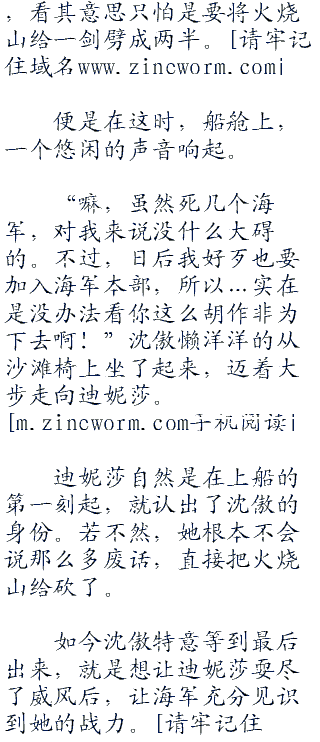 ，看其意思只怕是要将火烧
山给一剑劈成两半。[请牢记
住域名www.zincworm.com|
便是在这时，船舱上，
一个悠闲的声音响起。
“嘛，虽然死几个海
军，对我来说没什么大碍
的。不过，日后我好歹也要
加入海军本部，所以…实在
是没办法看你这么胡作非为
下去啊！”沈傲懒洋洋的从
沙滩椅上坐了起来，迈着大
步走向迪妮莎。
[m.zincworm.com手机阅读|
迪妮莎自然是在上船的
第一刻起，就认出了沈傲的
身份。若不然，她根本不会
说那么多废话，直接把火烧
山给砍了。
如今沈傲特意等到最后
出来，就是想让迪妮莎耍尽
了威风后，让海军充分见识
到她的战力。[请牢记住